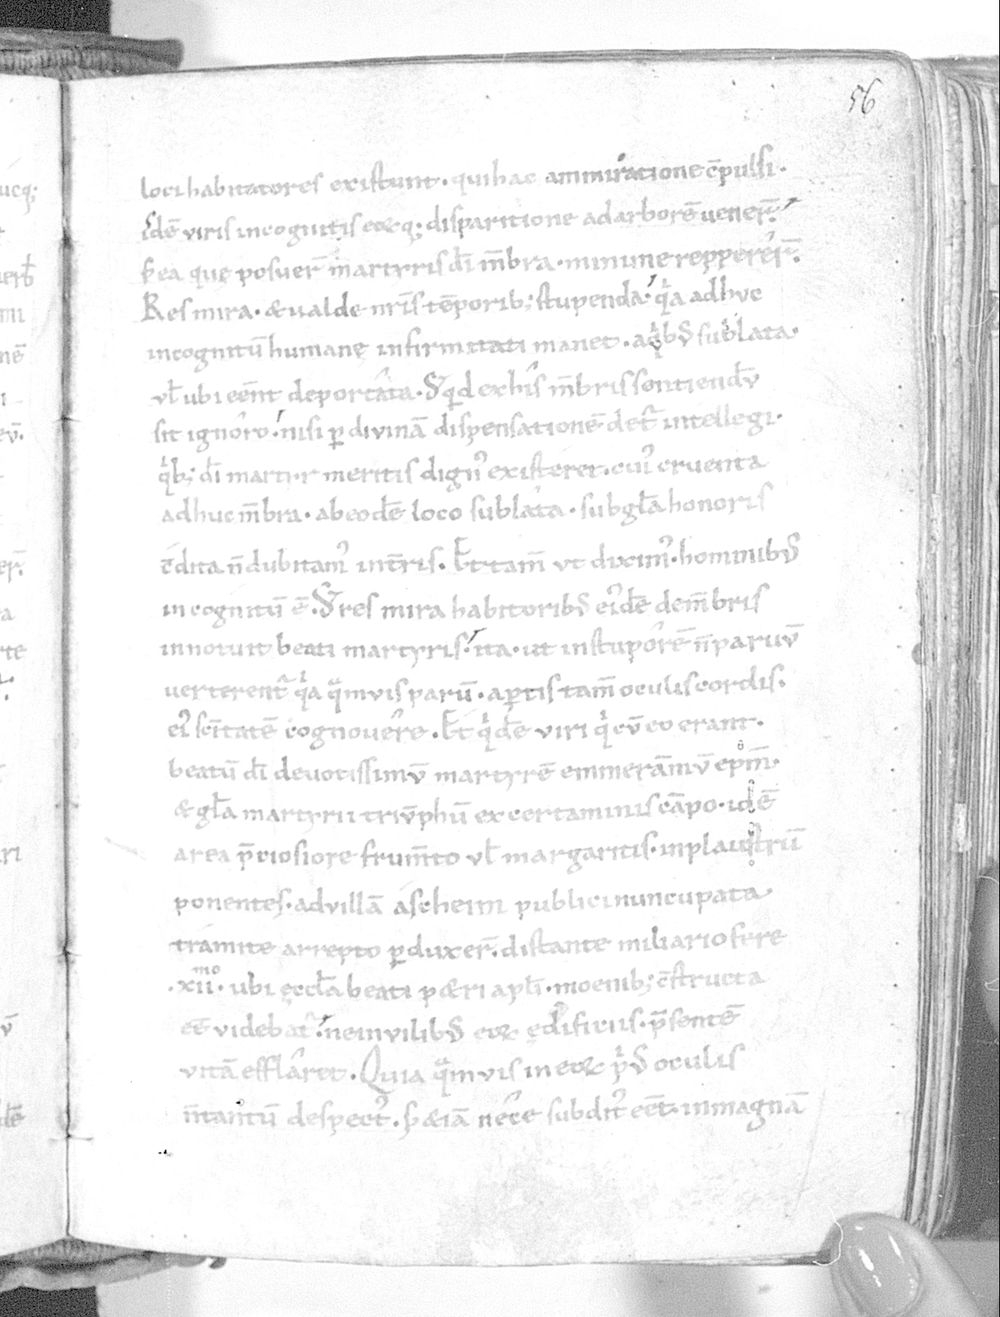 56
loci habitatores existunt. qui hac ammiratione cōpulsi.
Idē viris incognitis eorūq; disparitione ad arborē uener̄.
s; ea que posuer̄ martyris dī m̄bra. minune reppererr̄.
Res mira. & ualde nr̄is tēporib; stupenda. qia adhuc
incognitū humanę infirmitati manet. a qibꝰ sublata.
vl̄ ubi eēnt deportata. Sꝫ qid ex his m̄bris sentiendū
sit ignoro. nisi ꝑ divinā dispensationē decr̄ intellegi.
qib; dī martyr meritis dignꝰ existeret. eiꝰ cruenta
adhuc m̄bra. ab eodē loco sublata. sub gl̄a honoris
cōdita n̄ dubitamꝰ in tr̄ris. Et tam̄ vt diximꝰ. hominibꝰ
incognitū ē. Sꝫ res mira habitoribꝰ eiꝰdē de m̄bris
innotuit beati martyris. ita. ut in stuporē n̄ parvū
verterent qia qamvis parū. aꝑtis tam̄ oculis cordis.
eiꝰ scītatē cognovere. Et qidē viri qi cū eo erant.
beatū dī devotissimū martyrē emmerammū ep̄m.
& gl̄a martyrii triūphū ex certaminis cāpo. idē
area p̄ciosiore frum̄to vl̄ margaritis. in plaustrū
ponentes. ad villā ascheim publici nuncupata
tramite arrepto ꝑduxer̄. distante miliario fere
.xii.mo ubi eccl̄a beati p&ri apl̄i. moenib; cōstructa
eē videbat. ne in vilibꝰ eorū ędificiis. p̄sentē
vitā efflaret. Quia qamvis in eorū priꝰ oculis
n̄ tantū despect. s; &iā nece subditꝰ eēt. in magnā